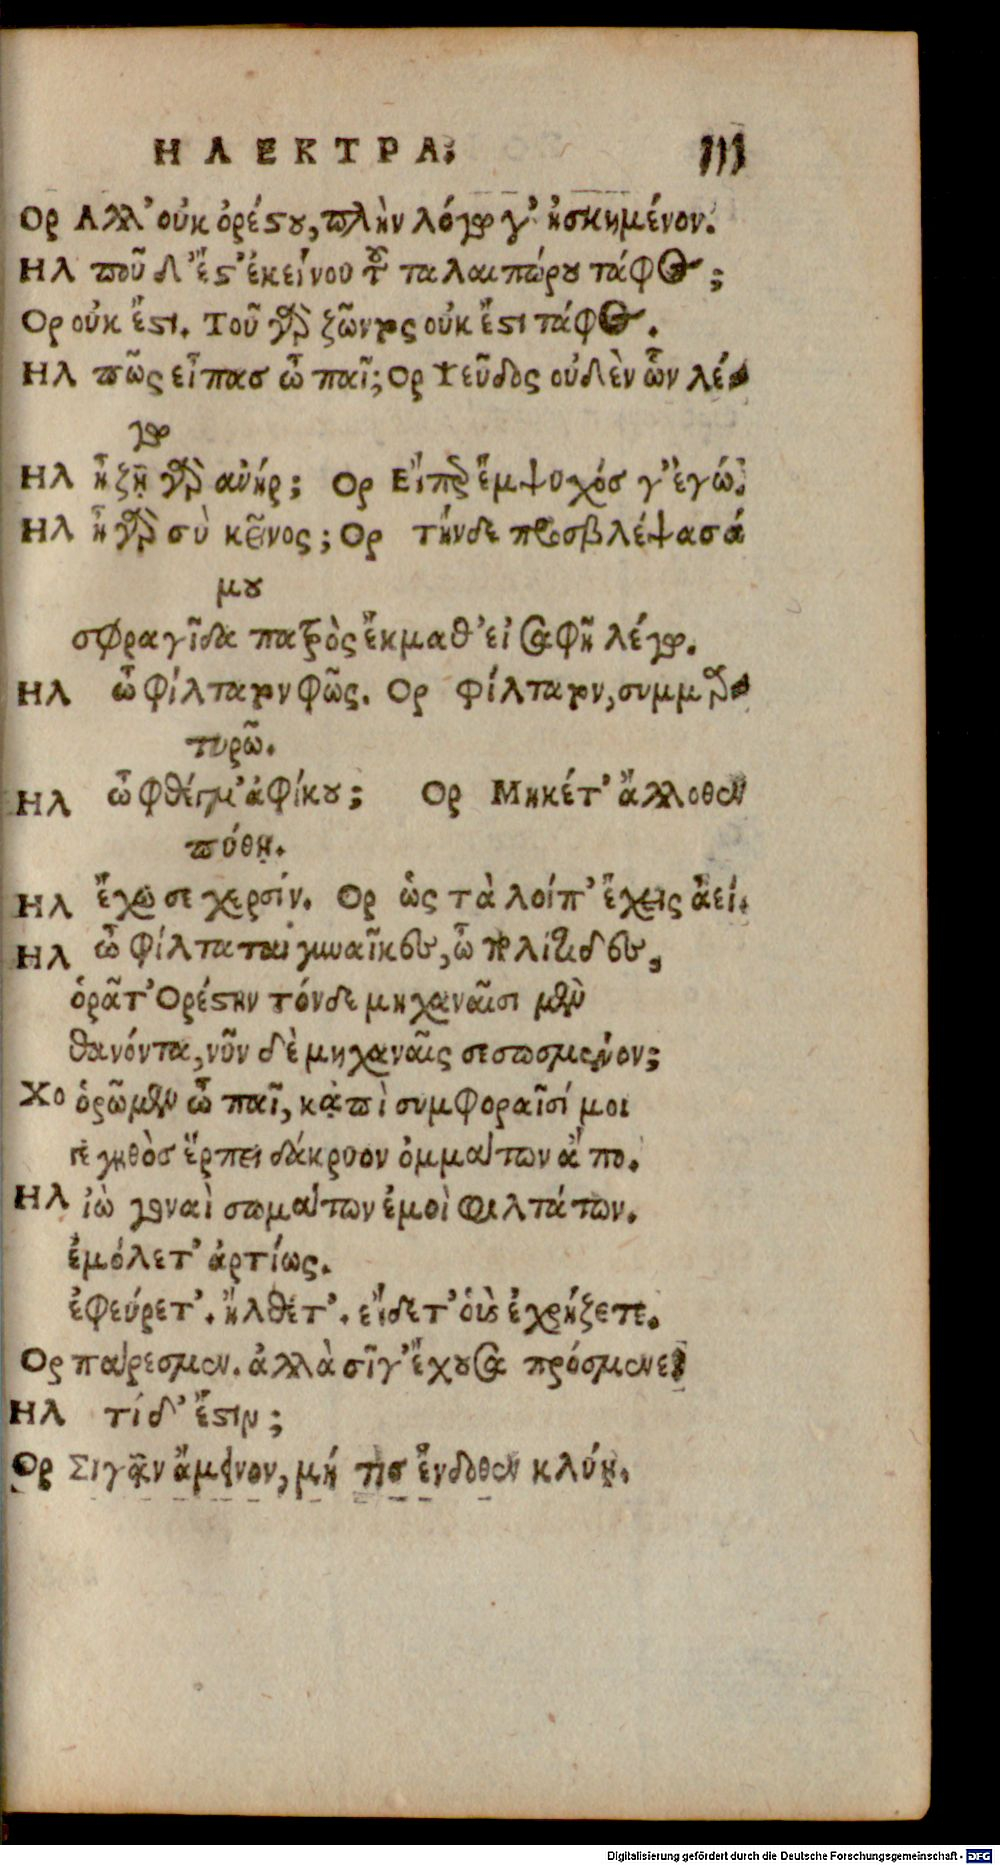 ΗΛΕΚΤΡΑ. 111
Ορ Αλλ' οὐκ ὀρέϛου, πλὴν λόγῳ γ' ἠσκημένον.
Ηλ ποῦ δ' ἔϛ' ἐκείνου τοῦ ταλαιπώρου τάφος;
Ορ οὐκ ἔϛι. Τοῦ γὰρ ζῶντος οὐκ ἔϛι τάφος.
Ηλ πῶς εἶπασ ὦ παῖ; Ορ Ψεῦδος οὐδὲν ὧν λέ-
γω
Ηλ ἦ ζῇ γὰρ ἁνήρ; Ορ Εἴπερ ἔμψυχόσ γ' ἐγώ.
Ηλ ἦ γὰρ σὺ κεῖνος; Ορ τήνδε προσβλέψασά
μου
σφραγῖδα πατρὸς ἔκμαθ' εἰ σαφῆ λέγω.
Ηλ ὦ φίλτατον φῶς. Ορ φίλτατον, συμμαρ-
τυρῶ.
Ηλ ὦ φθέγμ' ἀφίκου; Ορ Μηκέτ' ἄλλοθεν
πύθῃ.
Ηλ ἔχω σε χερσίν. Ορ ὡς τὰ λοίπ' ἔχεις ἀεί.
Ηλ ὦ φίλταται γυναῖκες, ὦ πολίτιδες,
ὁρᾶτ' Ορέϛην τόνδε μηχαναῖσι μὲν
θανόντα, νῦν δὲ μηχαναῖς σεσωσμένον;
Χο ὁρῶμεν ὦ παῖ, κἀπὶ συμφοραῖσί μοι
γεγηθὸσ ἕρπει δάκρυον ὀμμάτων ἄπο.
Ηλ ἰὼ γοναὶ σωμάτων ἐμοὶ φιλτάτων.
ἐμόλετ' ἀρτίως.
ἐφεύρετ'. ἤλθετ'. εἴδετ' οὓς ἐχρῄζετε.
Ορ πάρεσμεν. ἀλλὰ σῖγ' ἔχουσα πρόσμενε.
Ηλ τί δ' ἔϛιν;
Ορ Σιγᾷν ἄμεινον, μή τισ ἔνδοθεν κλύῃ.
Digitalisierung gefördert durch die Deutsche Forschungsgemeinschaft - DFG